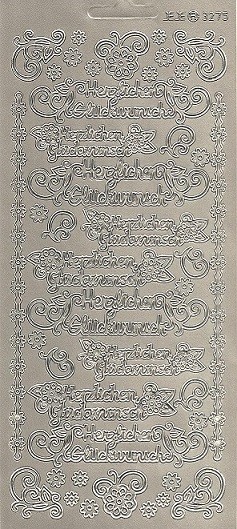 JEJE 3275
Herzlichen
Glückwunsch
Herzlichen
Glückwunsch
Herzlichen
Glückwunsch
Herzlichen
Glückwunsch
Herzlichen
Glückwunsch
Herzlichen
Glückwunsch
Herzlichen
Glückwunsch
Herzlichen
Glückwunsch
Herzlichen
Glückwunsch